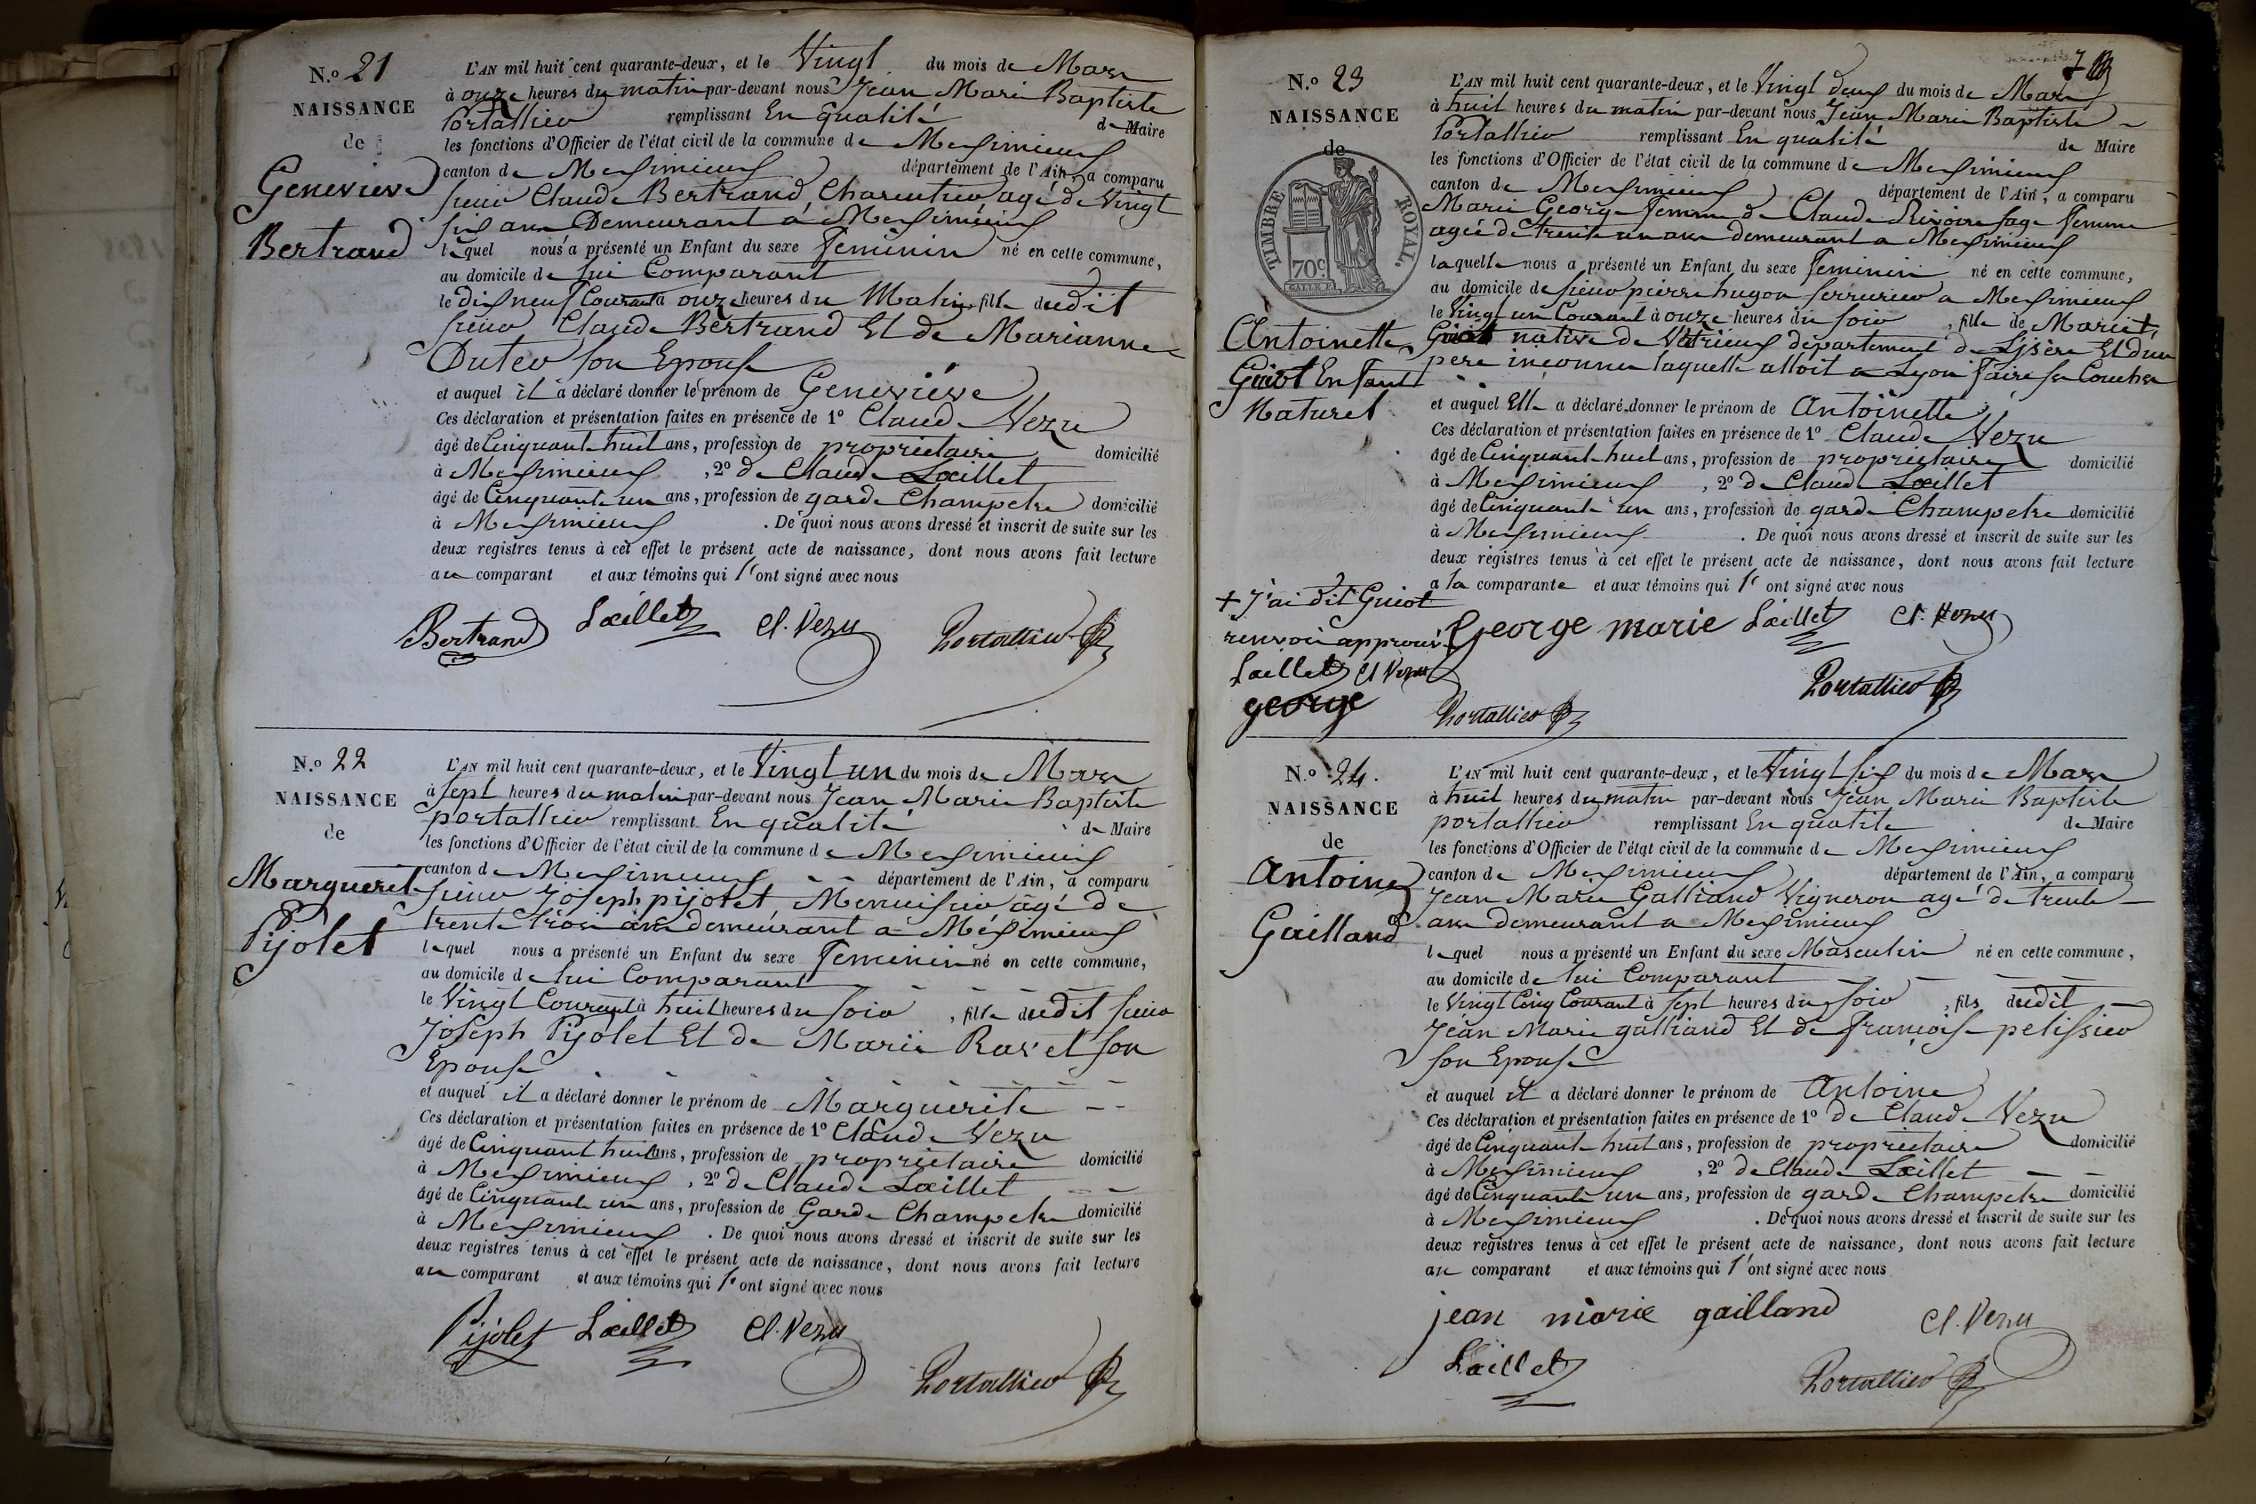 N.o 21
NAISSANCE
de
Geneviève
Bertrand
L'AN mil huit cent quarante-deux, et le Vingt du mois de Mars
à onze heures du matin par-devant nous Jean Marie Baptiste
Portallier remplissant En qualité de Maire
les fonctions d'Officier de l'état civil de la commune de Meximieux
canton de Meximieux département de l'Ain, a comparu
sieur Claude Bertrand, Charcutier agé de Vingt
six ans Demeurant à Meximieux
lequel nous a présenté un Enfant du sexe feminin né en cette commune,
au domicile de lui Comparant
le dix neuf Courant à onze heures du Matin fille dudit
sieur Claude Bertrand Et de Marianne
Duter son Epouse
et auquel il a déclaré donner le prénom de Geneviève
Ces déclaration et présentation faites en présence de 1o Claude Vezu
âgé de Cinquante huit ans, profession de propriétaire domicilié
à Meximieux, 2o de Claude Lœillet
âgé de Cinquante un ans, profession de garde Champetre domicilié
à Meximieux. De quoi nous avons dressé et inscrit de suite sur les
deux registres tenus à cet effet le présent acte de naissance, dont nous avons fait lecture
au comparant et aux témoins qui l'ont signé avec nous
Bertrand Lœillet Cl. Vezu Portallier
N.o 22
NAISSANCE
de
Marguerite
Pijolet
L'AN mil huit cent quarante-deux, et le Vingt un du mois de Mars
à sept heures du matin par-devant nous Jean Marie Baptiste
portallier remplissant En qualité de Maire
les fonctions d'Officier de l'état civil de la commune de Meximieux
canton de Meximieux département de l'Ain, a comparu
sieur Joseph pijolet, Menuisier agé de
trente trois ans demeurant à Méximieux
lequel nous a présenté un Enfant du sexe feminin né en cette commune,
au domicile de lui Comparant
le Vingt Courant à huit heures du soir, fille dudit sieur
Joseph Pijolet Et de Marie Ravet son
Epouse
et auquel il a déclaré donner le prénom de Marguerite
Ces déclaration et présentation faites en présence de 1o Claude Vezu
âgé de Cinquante huit ans, profession de propriétaire domicilié
à Meximieux, 2o de Claude Lœillet
âgé de Cinquante un ans, profession de Garde Champetre domicilié
à Meximieux. De quoi nous avons dressé et inscrit de suite sur les
deux registres tenus à cet effet le présent acte de naissance, dont nous avons fait lecture
au comparant et aux témoins qui l'ont signé avec nous
Pijolet Lœillet Cl. Vezu
Portallier
7
N.o 23
NAISSANCE
de
TIMBRE ROYAL.
70c.
Antoinette
Guiot Enfant
Naturel
L'AN mil huit cent quarante-deux, et le Vingt deux du mois de Mars
à huit heures du matin par-devant nous Jean Marie Baptiste
Portallier remplissant En qualité de Maire
les fonctions d'Officier de l'état civil de la commune de Meximieux
canton de Meximieux département de l'Ain, a comparu
Marie George femme de Claude Rivoire sage femme
agée de trente un ans demeurant a Meximieux
laquelle nous a présenté un Enfant du sexe feminin né en cette commune,
au domicile de sieur pierre hugon serrurier a Meximieux
le Vingt un Courant à onze heures du soir, fille de Marie +
Guiot native de Vatrieux département de L'isère Et d'un
père inconnu laquelle alloit a Lyon faire ses Couches
et auquel Elle a déclaré donner le prénom de Antoinette
Ces déclaration et présentation faites en présence de 1o Claude Vezu
âgé de Cinquante huit ans, profession de propriétaire domicilié
à Meximieux, 2o de Claude Lœillet
âgé de Cinquante un ans, profession de garde Champetre domicilié
à Meximieux. De quoi nous avons dressé et inscrit de suite sur les
deux registres tenus à cet effet le présent acte de naissance, dont nous avons fait lecture
a la comparante et aux témoins qui l'ont signé avec nous
+ J'ai dit Guiot
renvoi approuvé
Lœillet Cl Vezu
george Portallier
George marie Lœillet Cl. Vezu
Portallier
N.o 24.
NAISSANCE
de
Antoine
Gailland
L'AN mil huit cent quarante-deux, et le Vingt six du mois de Mars
à huit heures du matin par-devant nous Jean Marie Baptiste
portallier remplissant En qualite de Maire
les fonctions d'Officier de l'état civil de la commune de Meximieux
canton de Meximieux département de l'Ain, a comparu
Jean Marie Galliand Vigneron agé de trente
ans demeurant a Meximieux
lequel nous a présenté un Enfant du sexe Masculin né en cette commune,
au domicile de lui Comparant
le Vingt Cinq Courant à sept heures du soir, fils dudit
Jean Marie galliand Et de françoise pelissier
son Epouse
et auquel il a déclaré donner le prénom de Antoine
Ces déclaration et présentation faites en présence de 1o de Claude Vezu
âgé de Cinquante huit ans, profession de propriétaire domicilié
à Meximieux, 2o de Claude Lœillet
âgé de Cinquante un ans, profession de garde Champetre domicilié
à Meximieux. De quoi nous avons dressé et inscrit de suite sur les
deux registres tenus à cet effet le présent acte de naissance, dont nous avons fait lecture
au comparant et aux témoins qui l'ont signé avec nous
jean marie gailland Cl. Vezu
Lœillet Portallier